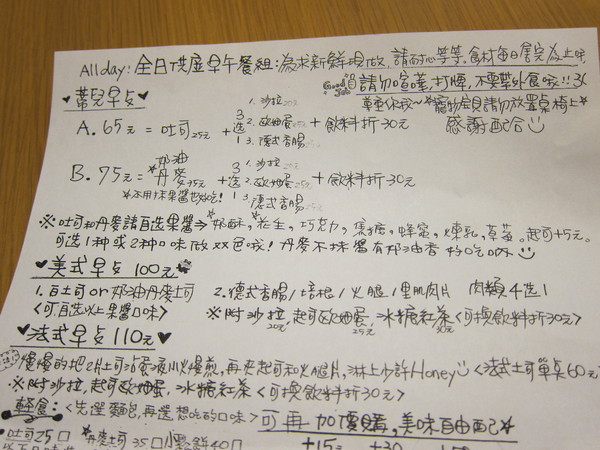 Allday! 全日供應早午餐組:為求新鮮現做,請耐心等等.食材每日售完為止呦
請勿喧嘩,打牌,不要帶外食哦!!
早點
尊重你我~*寵物宝貝請勿放置桌椅上*
感謝配合
A. 65元 = 吐司25元 + 3選1 1.沙拉 2.歐姆蛋 3.德式香腸 + 飲料折30元
B. 75元 = *奶油丹麥35元 + 3選1 1.沙拉 2.歐姆蛋 3.德式香腸 + 飲料折30元
*不用抹果醬也好吃!
※吐司和丹麥請自選果醬⇒奶酥,花生,巧克力,焦糖,蜂蜜,煉乳,草莓。起司+5元。
可選1種或2種口味做双色哦!丹麥不抹醬有奶油香 好吃
美式早点 100元
1.白土司or奶油丹麥土司 2.德式香腸/培根/火腿/里肌肉片 肉類4選1
<可自選以上果醬口味> ※附沙拉,起司歐姆蛋,冰糖紅茶<可換飲料折30元>
法式早点 110元
慢慢的把2片土司沾蛋液小火慢煎,再夾起司和火腿片,淋上少許Honey <法式土司單点60元>
※附沙拉,起司歐姆蛋,冰糖紅茶<可換飲料折30元>
輕食:<先選麵包,再選想吃的口味>可再加價購,美味自由配
吐司25 *丹麥土司35 40
+15元 +30